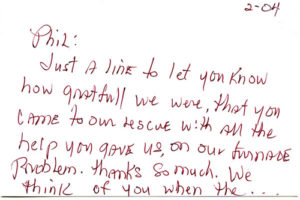 2-04
Phil:
Just A line to let you know
how gratfull we were, that you
came to our rescue with all the
help you gave us on our furnace
Problem. thanks so much. We
think of you when the...